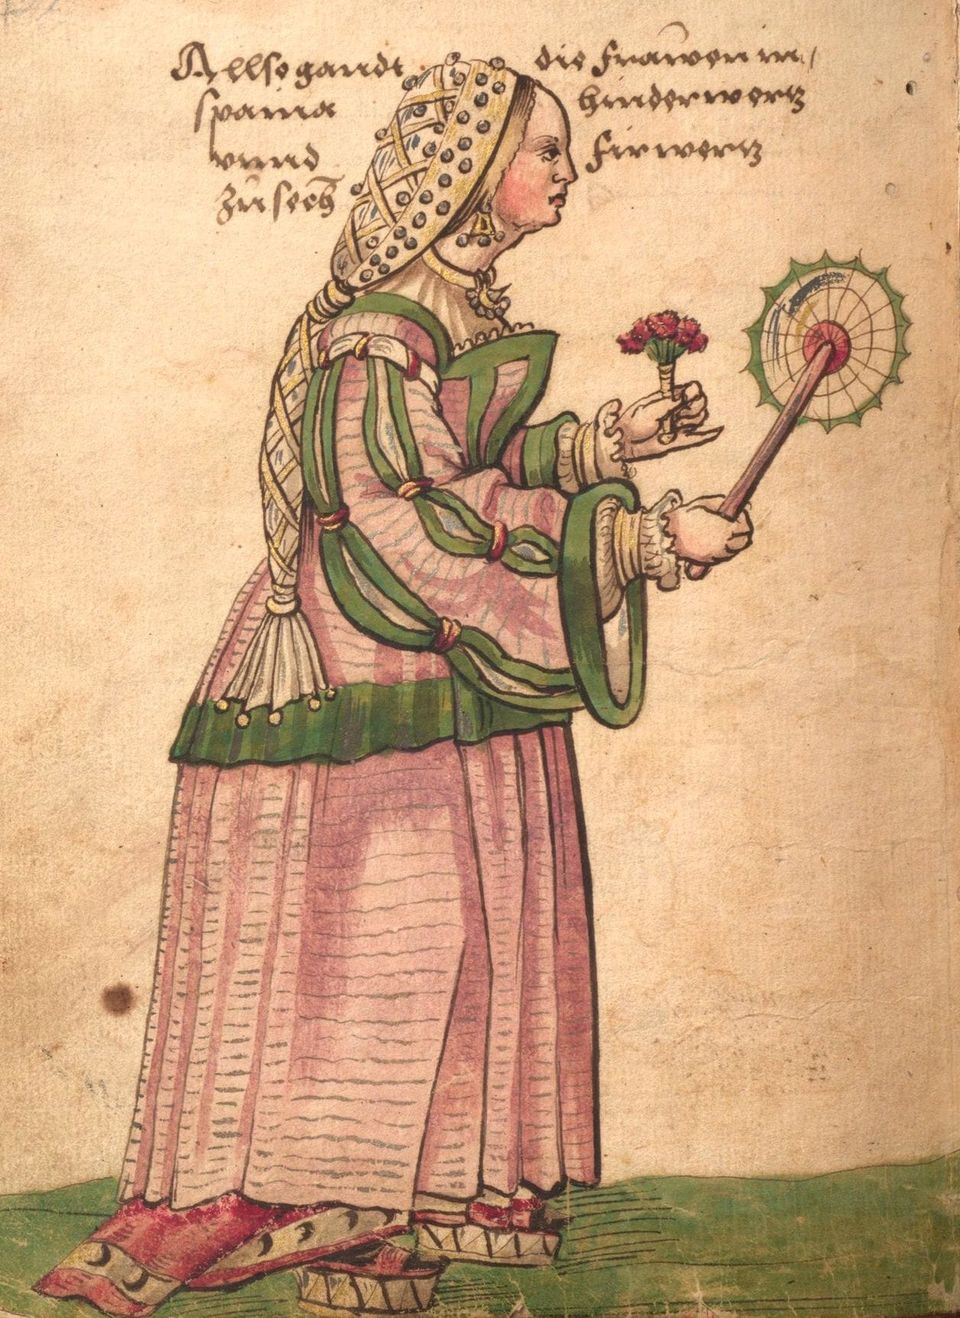 Allso gandt die frawen in
spania hinderwertz
vnnd firwertz
zu sech